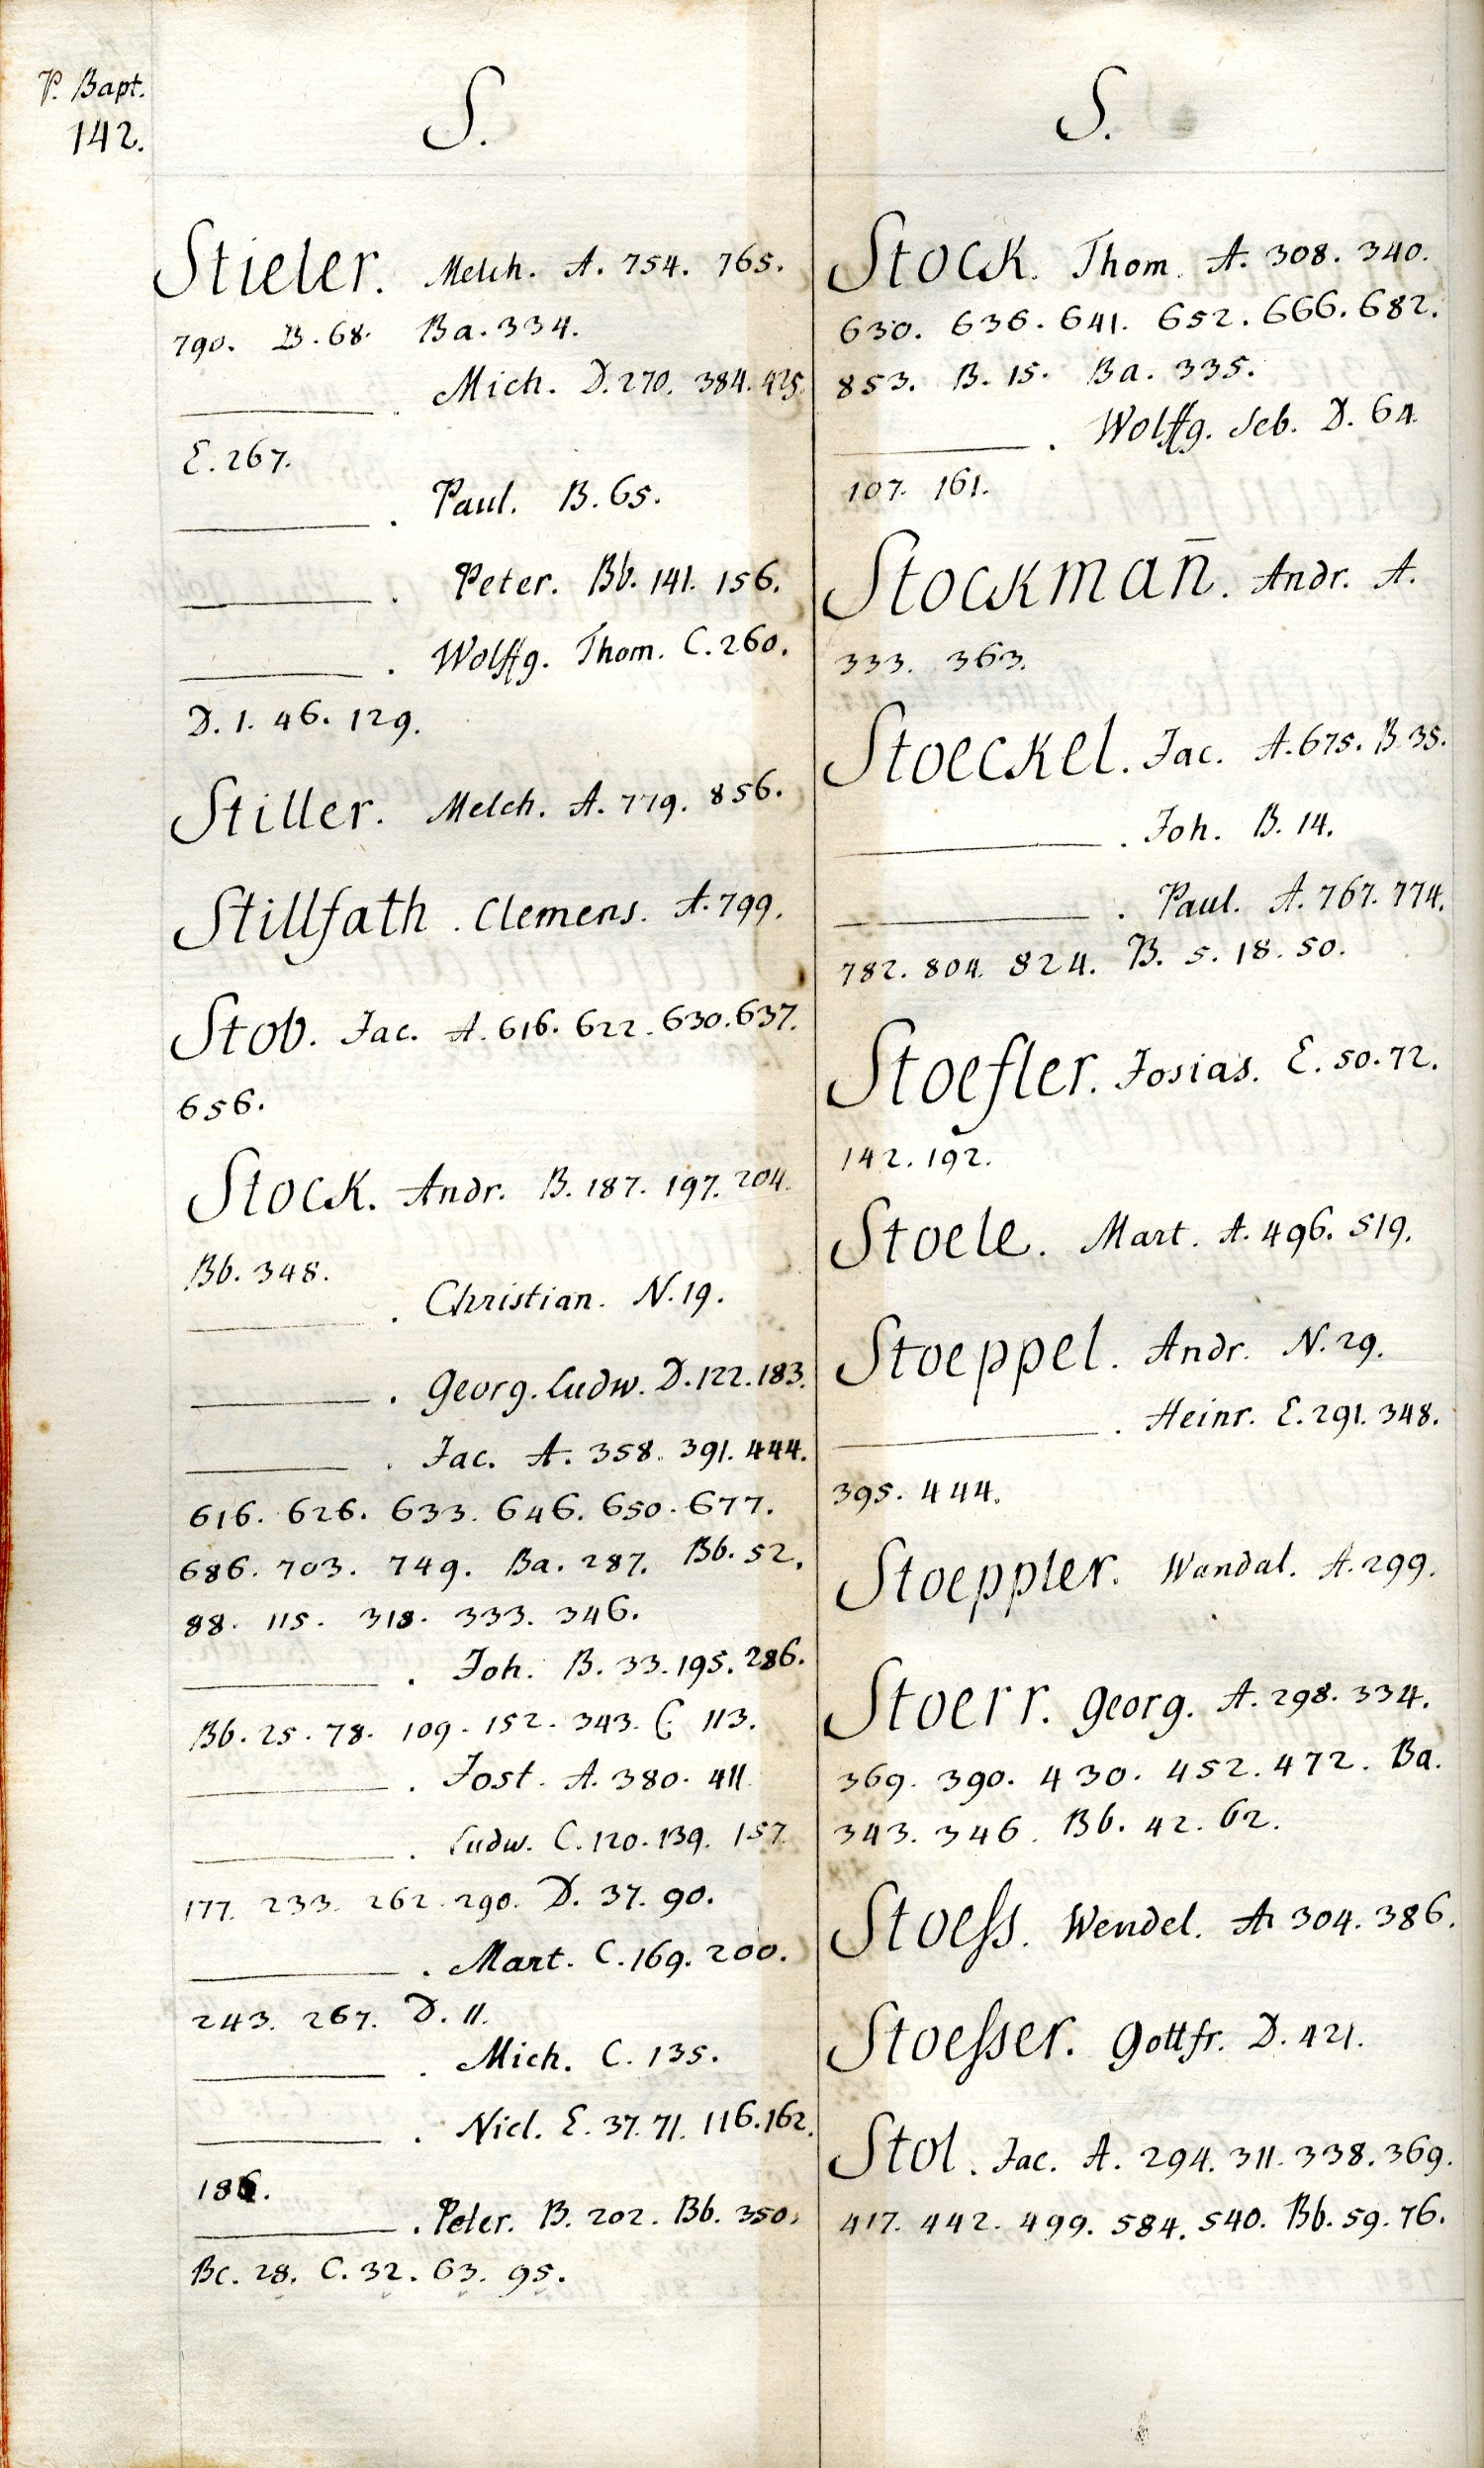 P. Bapt.
142.
S.
Stieler. Melch. A. 754. 765.
790. B. 68. Ba. 334.
———. Mich. D. 270. 384. 425.
E. 267.
———. Paul. B. 65.
———. Peter. Bb. 141. 156.
———. Wolffg. Thom. C. 260.
D. 1. 46. 129.
Stiller. Melch. A. 779. 856.
Stillfath. Clemens. A. 799.
Stob. Jac. A. 616. 622. 630. 637.
656.
Stock. Andr. B. 187. 197. 204.
Bb. 348.
———. Christian. N. 19.
———. Georg. Ludw. D. 122. 183.
———. Jac. A. 358. 391. 444.
616. 626. 633. 646. 650. 677.
686. 703. 749. Ba. 287. Bb. 52.
88. 115. 318. 333. 346.
———. Joh. B. 33. 195. 286.
Bb. 25. 78. 109. 152. 343. C. 113.
———. Jost. A. 380. 411.
———. Ludw. C. 120. 139. 157.
177. 233. 262. 290. D. 37. 90.
———. Mart. C. 169. 200.
243. 267. D. 11.
———. Mich. C. 135.
———. Nicl. E. 37. 71. 116. 162.
186.
———. Peter. B. 202. Bb. 350.
Bc. 28. C. 32. 63. 95.
S.
Stock. Thom. A. 308. 340.
630. 636. 641. 652. 666. 682.
853. B. 15. Ba. 335.
———. Wolffg. Seb. D. 64.
107. 161.
Stockman̄. Andr. A.
333. 363.
Stoeckel. Jac. A. 675. B. 35.
———. Joh. B. 14.
———. Paul. A. 767. 774.
782. 804. 824. B. 5. 18. 50.
Stoefler. Josias. E. 50. 72.
142. 192.
Stoele. Mart. A. 496. 519.
Stoeppel. Andr. N. 29.
———. Heinr. E. 291. 348.
395. 444.
Stoeppler. Wandal. A. 299.
Stoerr. Georg. A. 298. 334.
369. 390. 430. 452. 472. Ba.
343. 346. Bb. 42. 62.
Stoeſs. Wendel. A. 304. 386.
Stoeſser. Gottfr. D. 421.
Stol. Jac. A. 294. 311. 338. 369.
417. 442. 499. 584. 540. Bb. 59. 76.